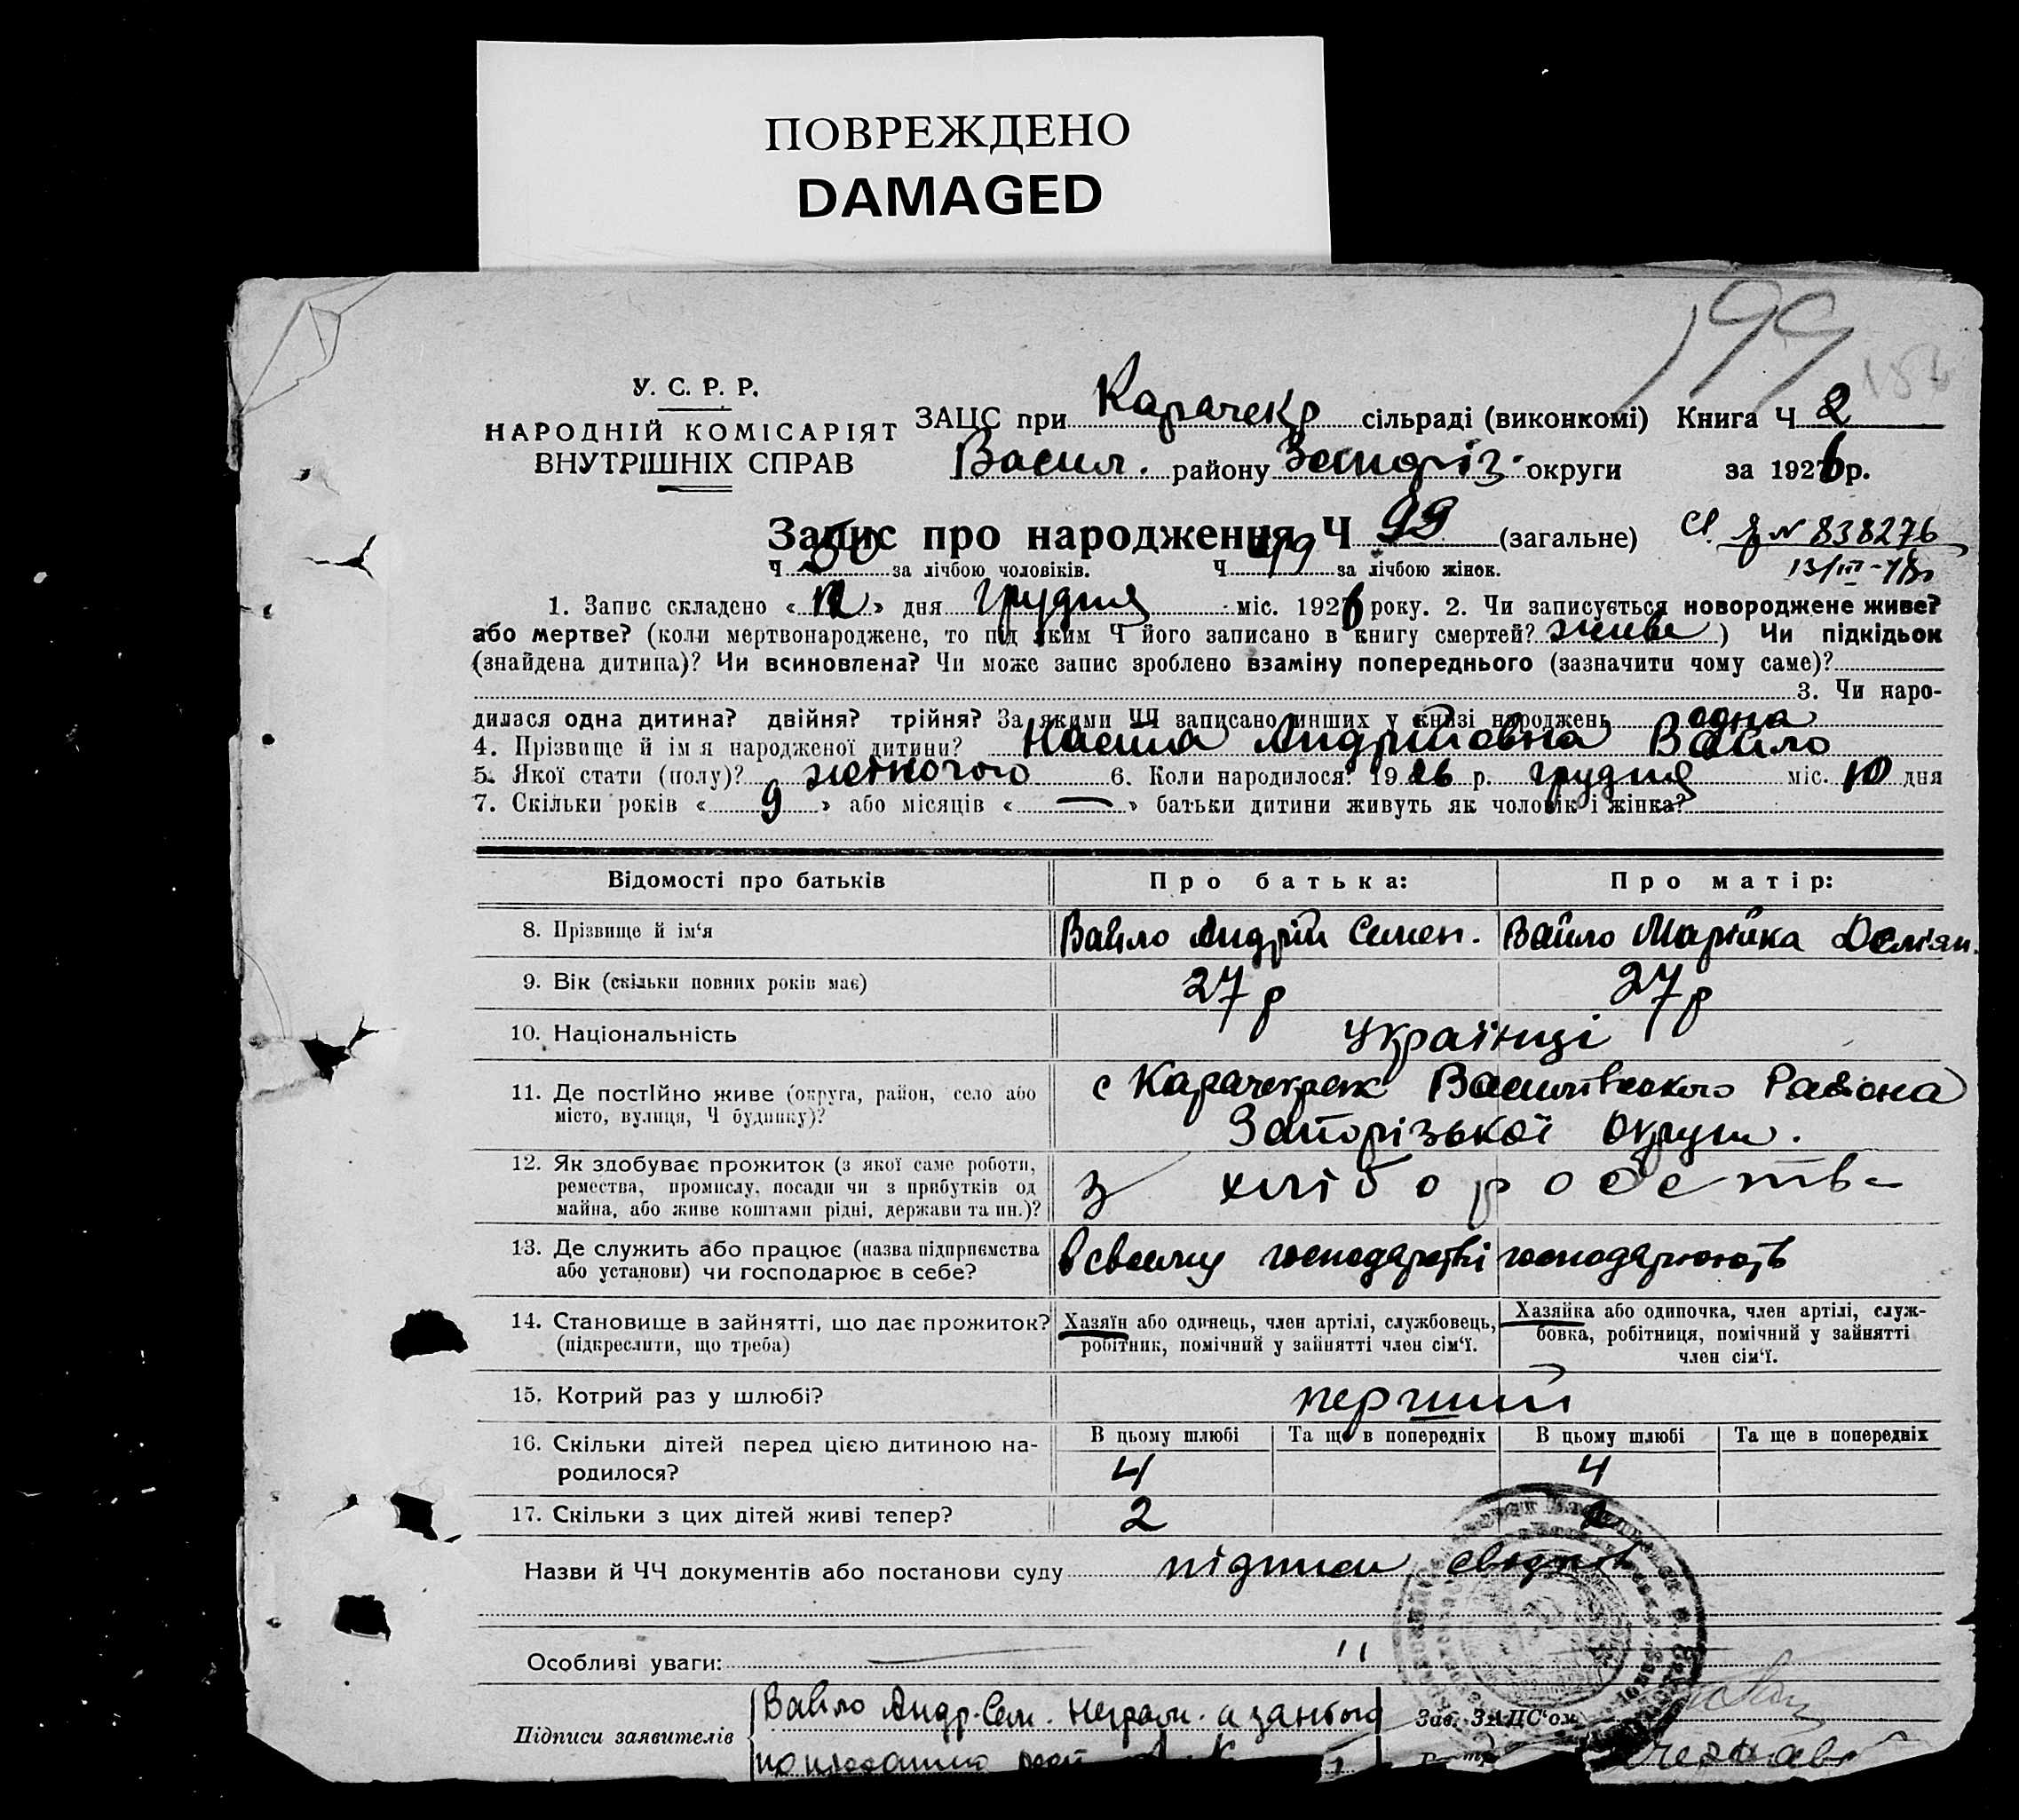 ПОВРЕЖДЕНО
DAMAGED
199
У. С. Р. Р.
НАРОДНІЙ КОМІСАРІЯТ
ВНУТРІШНІХ СПРАВ
ЗАЦС при Карачекр сільраді (виконкомі) Книга Ч 2
Васил. району Запоріз. округи за 1926 р.
Запис про народження Ч 99 (загальне)
№ 838276
Ч 50 за лічбою чоловіків. Ч 49 за лічбою жінок.
1. Запис складено «12» дня грудня міс. 1926 року. 2. Чи записується новороджене живе?
або мертве? (коли мертвонароджене, то під яким Ч його записано в книгу смертей? живе) Чи підкідьок
(знайдена дитина)? Чи всиновлена? Чи може запис зроблено взаміну попереднього (зазначити чому саме)?
3. Чи наро-
дилася одна дитина? двійня? трійня? За якими ЧЧ записано инших у книзі народжень одна
4. Прізвище й ім я народженої дитини? Настя Андріївна Вайло
5. Якої стати (полу)? жіночого 6. Коли народилося? 1926 р. грудня міс. 10 дня
7. Скільки років «9» або місяців «—» батьки дитини живуть як чоловік і жінка?
Відомості про батьків Про батька: Про матір:
8. Прізвище й ім‘я Вайло Андрій Семен. Вайло Марійка Демʼян.
9. Вік (скільки повних років має) 27 р 27 р
10. Національність Українці
11. Де постійно живе (округа, район, село або
місто, вулиця, Ч будинку)?
с Карачекрак Василівського Района
Запорізької округи.
12. Як здобуває прожиток (з якої саме роботи,
ремества, промислу, посади чи з прибутків од
майна, або живе коштами рідні, держави та ин.)?
з хліборобства
13. Де служить або працює (назва підприємства
або установи) чи господарює в себе?
в своєму господарстві господарюють
14. Становище в зайнятті, що дає прожиток?
(підкреслити, що треба)
Хазяїн або одинець, член артілі, службовець,
робітник, помічний у зайнятті член сім‘ї.
Хазяйка або одиночка, член артілі, служ-
бовка, робітниця, помічний у зайнятті
член сім‘ї.
15. Котрий раз у шлюбі? перший
16. Скільки дітей перед цією дитиною на-
родилося?
В цьому шлюбі Та ще в попередніх В цьому шлюбі Та ще в попередніх
4 4
17. Скільки з цих дітей живі тепер? 2 2
Назви й ЧЧ документів або постанови суду підписи свідків
Особливі уваги: — "
Підписи заявителів
Вайло Андр. Сем. неграм. а за нього
Зав. ЗАЦС‘ом